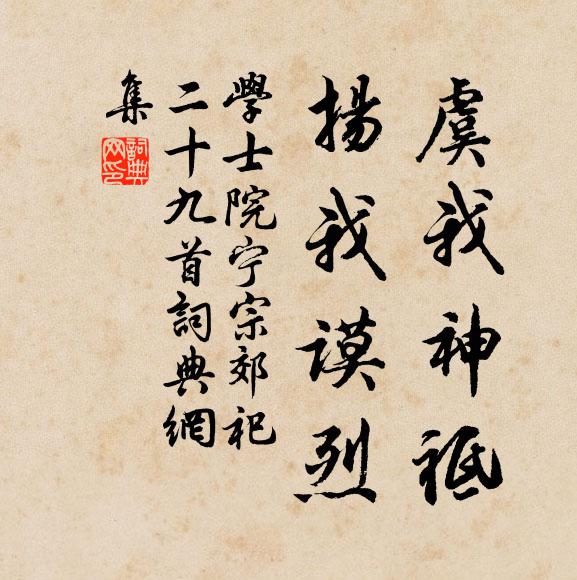 虞我神祗
揚我謨烈
學士院宁宗郊祀
二十九首詞典網
集
詞典網印